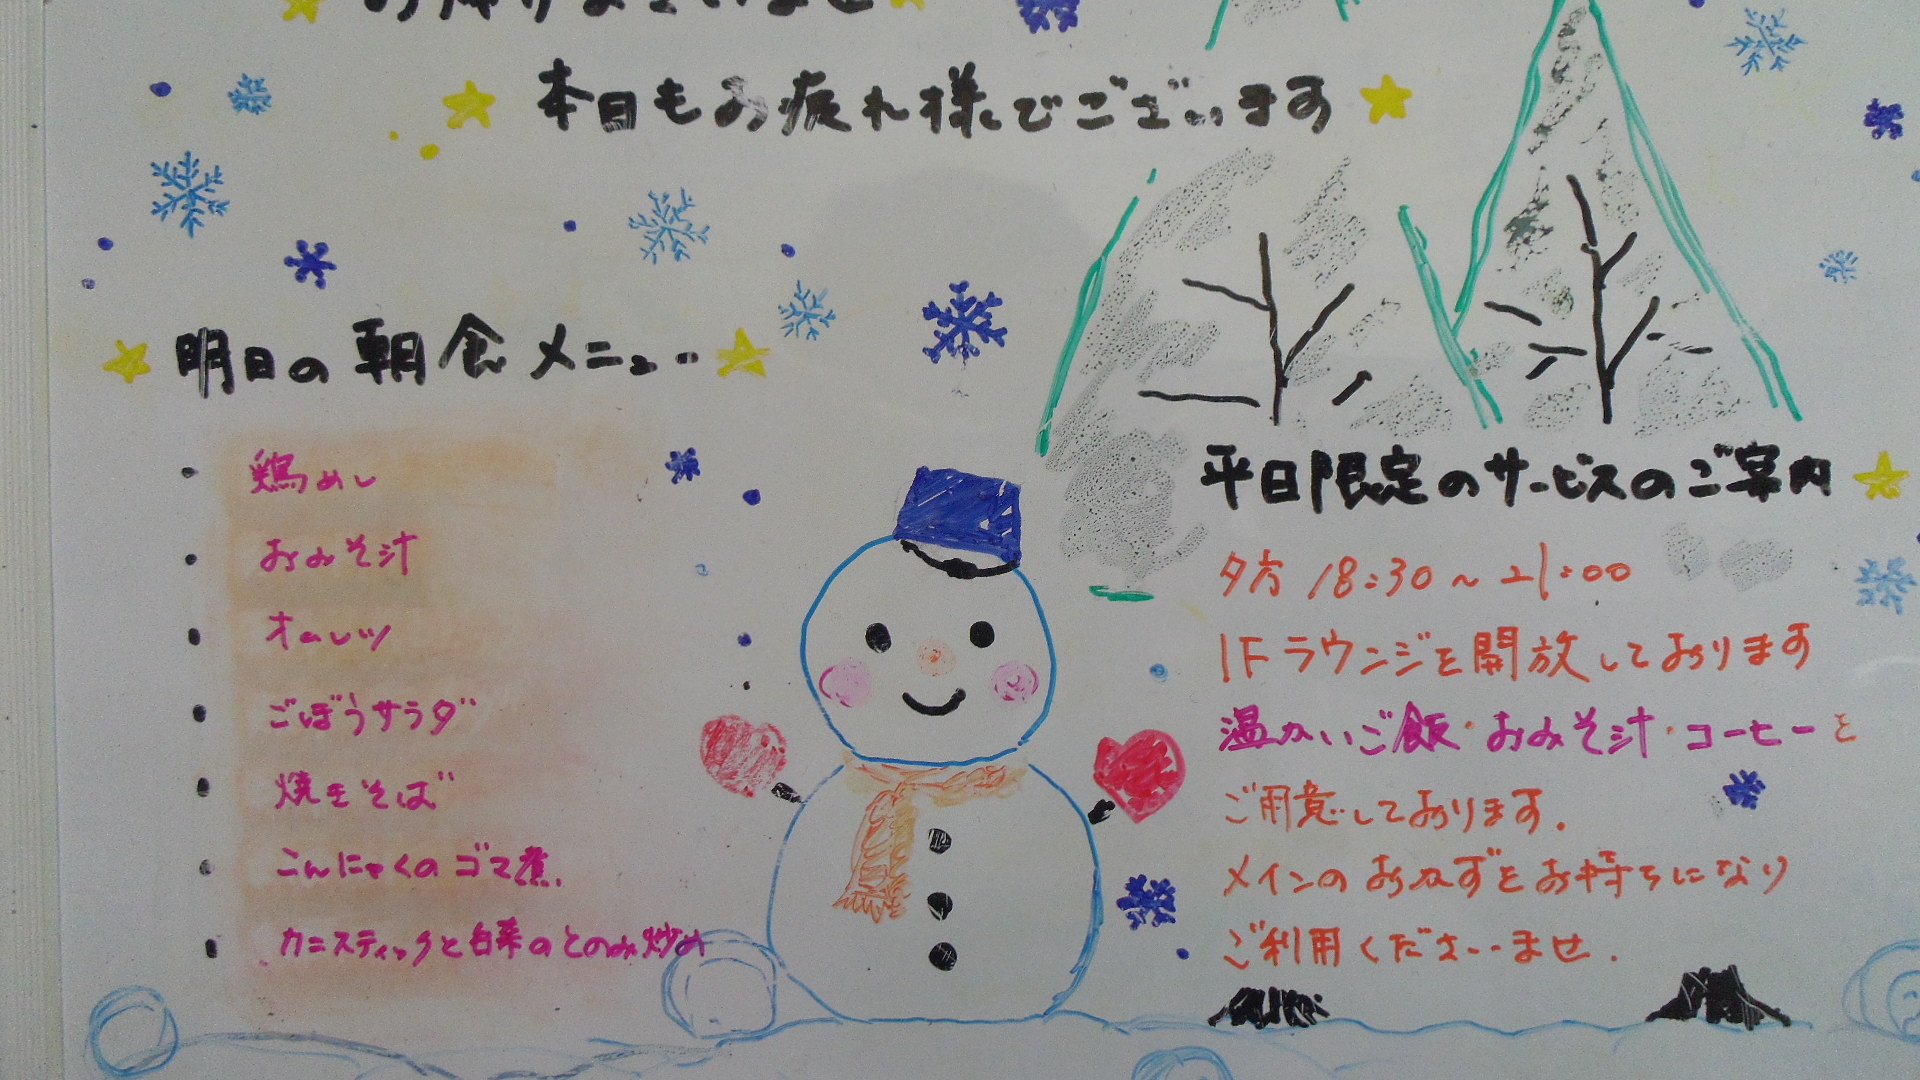 お帰りなさいませ
本日もお疲れ様でございます
明日の朝食メニュー
・鶏めし
・おみそ汁
・オムレツ
・ごぼうサラダ
・焼きそば
・こんにゃくのゴマ煮.
・カニスティックと白菜のとろみ炒め
平日限定のサービスのご案内
夕方 18:30~21:00
1Fラウンジを開放しております
温かいご飯・おみそ汁・コーヒーを
ご用意しております.
メインのおかずをお持ちになり
ご利用くださいませ.